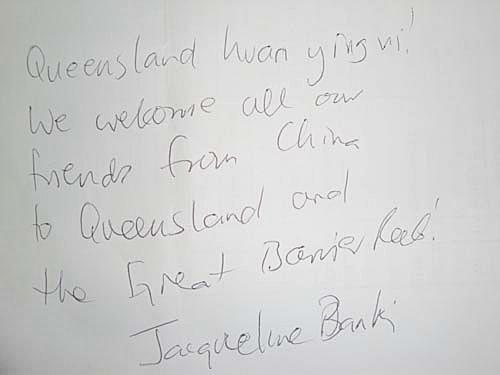 Queensland huan ying ni!
We welcome all our
friends from China
to Queensland and
the Great Barrier Reef!
Jacqueline Banki